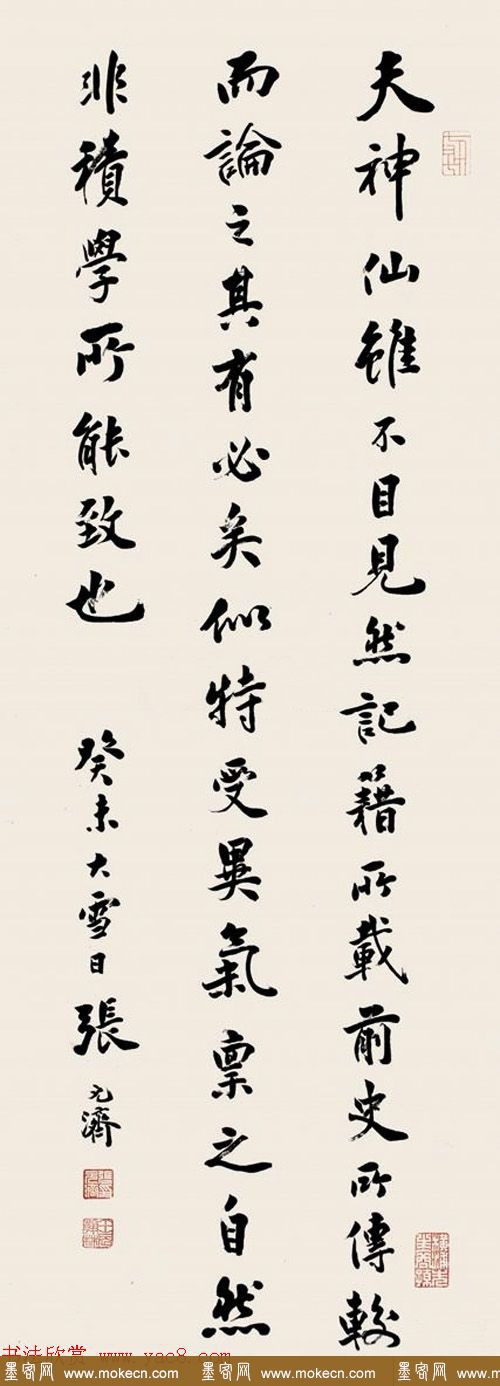 夫神仙雖不目見然記籍所載前史所傳較
而論之其有必矣似特受異氣稟之自然
非積學所能致也
癸未大雪日張元濟
书法欣赏 www.yac8.com
墨客网 www.mokecn.com 墨客网 www.mokecn.com 墨客网 www.mokecn.com